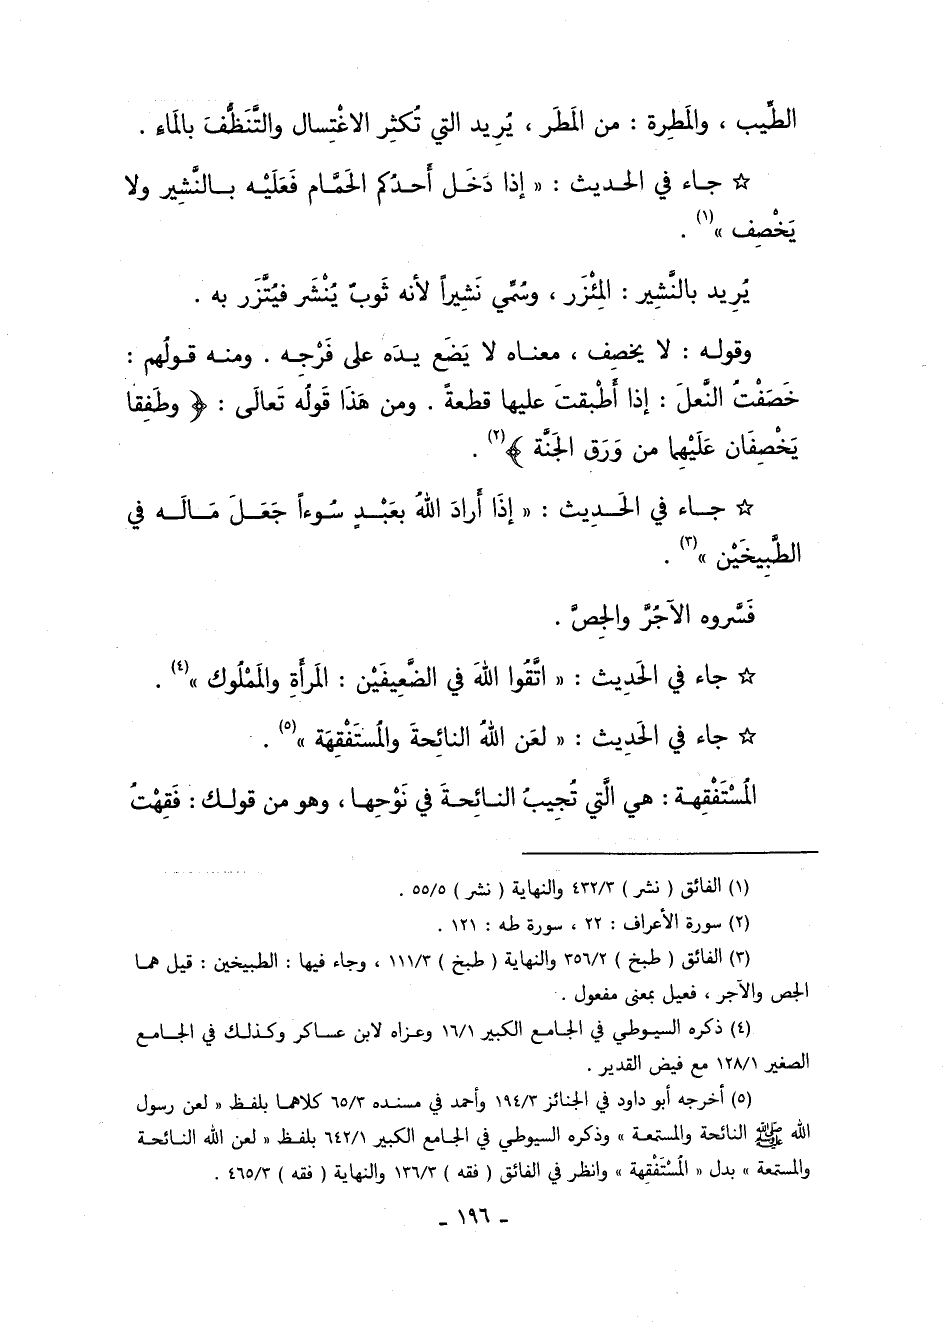 الطِّيب ، والمَطِرة : من المَطَر ، يُرِيد التي تُكثِر الاغْتِسال والتَّنَظُّفَ بالمَاء .
☆ جـاء في الحـديث : « إذا دَخَـل أَحـدُكم الحَمَّام فَعَلَيْـه بـالنَّشِير ولا
يَخْصِف »(١) .
يُرِيد بالنَّشِير : المِئْزَر ، وسُمِّي نَشِيراً لأنه ثَوبٌ يُنْشَر فيُتَّزَر به .
وقولـه : لا يخصِف ، معناه لا يَضَع يـدَه على فَرْجِـه . ومنـه قـولُهم :
خَصَفْتُ النَّعلَ : إذا أَطْبقتَ عليها قطعةً . ومن هَذَا قَولُه تَعالَى : ﴿ وطَفِقا
يَخْصِفَان عَلَيْهِما من وَرَق الجَنَّة ﴾(٢) .
☆ جــاء في الحَــدِيث : « إذَا أَرادَ اللهُ بعَبْــدٍ سُـوءاً جَعَـلَ مَـالَــه في
الطَّبِيخَيْن »(٣) .
فَسَّروه الآجُرَّ والجِصَّ .
☆ جاء في الحَدِيث : « اتَّقُوا اللهَ في الضَّعِيفَيْن : المَرأَةِ والمَمْلُوك »(٤) .
☆ جاء في الحَدِيث : « لعَن اللهُ النائِحةَ والمُستَفْقِهَة »(٥) .
المُسْتَفْقِهـة : هي الَّتي تُجِيبُ النـائِحـةَ في نَوْحِهـا ، وهو من قولـك : فَقِهْتُ
(١) الفائق ( نشر ) ٤٣٢/٣ والنهاية ( نشر ) ٥٥/٥ .
(٢) سورة الأعراف : ٢٢ ، سورة طه : ١٢١ .
(٣) الفائق ( طبخ ) ٣٥٦/٢ والنهاية ( طبخ ) ١١١/٣ ، وجاء فيها : الطبيخين : قيل همـا
الجص والآجر ، فعيل بمعنى مفعول .
(٤) ذكره السيـوطي في الجـامع الكبير ١٦/١ وعـزاه لابن عسـاكر وكـذلـك في الجـامـع
الصغير ١٢٨/١ مع فيض القدير .
(٥) أخرجه أبو داود في الجنائز ١٩٤/٣ وأحمد في مسنده ٦٥/٣ كلاهما بلفظ « لعن رسول
الله ﷺ النائحة والمستمعة » وذكره السيوطي في الجامع الكبير ٦٤٢/١ بلفـظ « لعن الله النـائحـة
والمستمعة » بدل « المُسْتَفْقِهة » وانظر في الفائق ( فقه ) ١٣٦/٣ والنهاية ( فقه ) ٤٦٥/٣ .
- ١٩٦ -